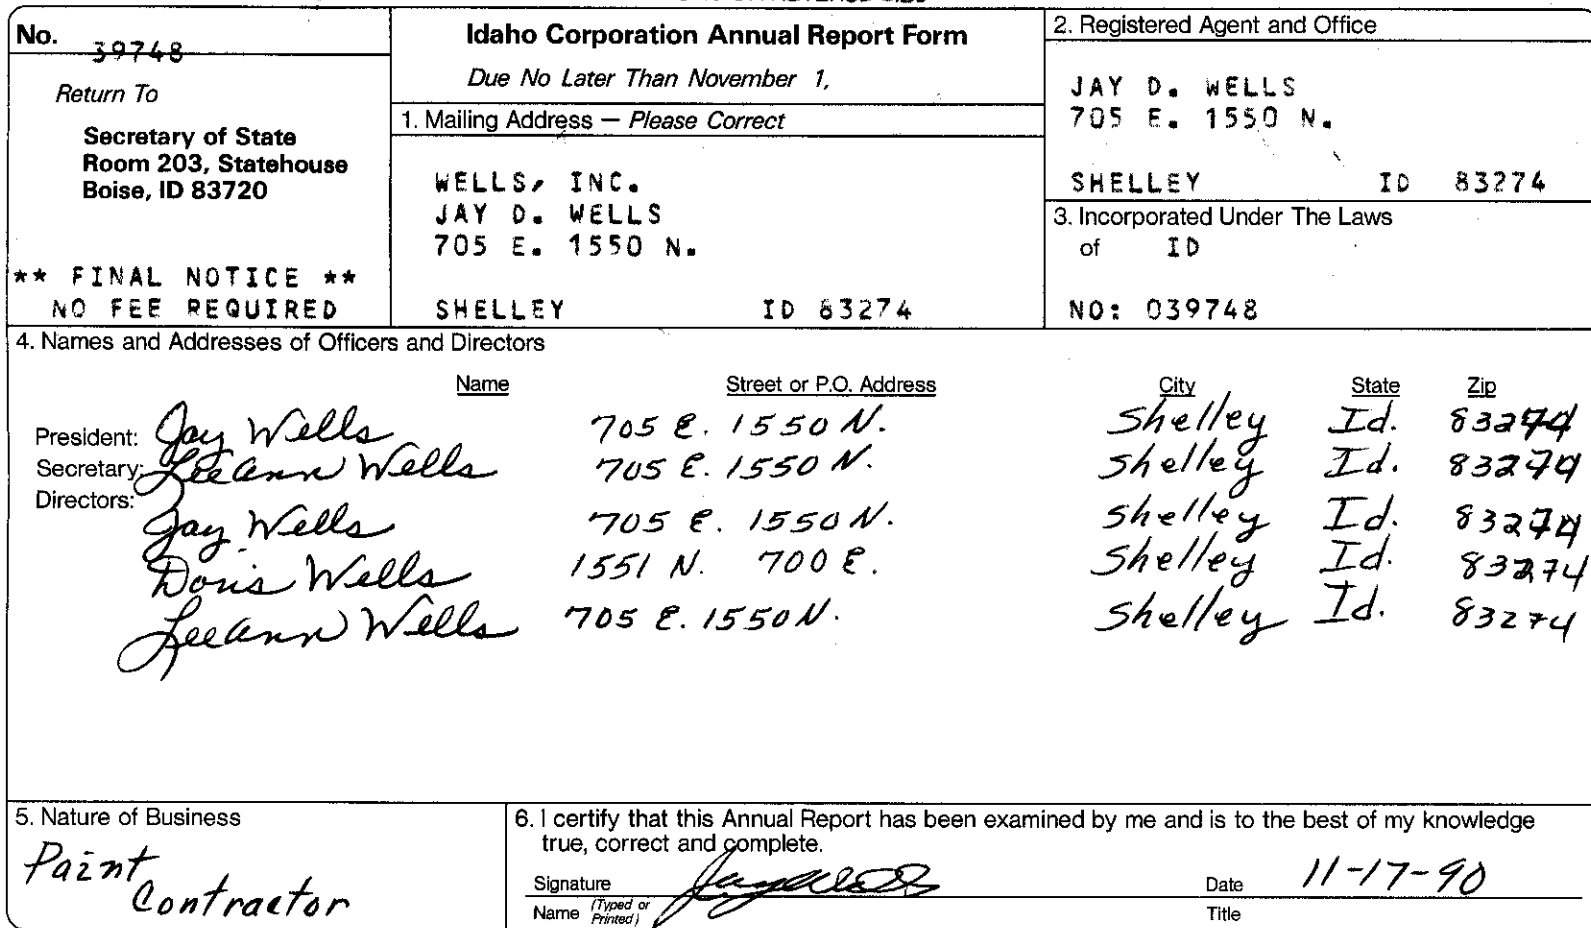 No. 39748
Return To
Secretary of State
Room 203, Statehouse
Boise, ID 83720
** FINAL NOTICE **
NO FEE REQUIRED
Idaho Corporation Annual Report Form
Due No Later Than November 1,
1. Mailing Address — Please Correct
WELLS, INC.
JAY D. WELLS
705 E. 1550 N.
SHELLEY ID 83274
2. Registered Agent and Office
JAY D. WELLS
705 E. 1550 N.
SHELLEY ID 83274
3. Incorporated Under The Laws
of ID
NO: 039748
4. Names and Addresses of Officers and Directors
Name Street or P.O. Address City State Zip
President: Jay Wells 705 E. 1550 N. Shelley Id. 83274
Secretary: LeeAnn Wells 705 E. 1550 N. Shelley Id. 83274
Directors:
Jay Wells 705 E. 1550 N. Shelley Id. 83274
Doris Wells 1551 N. 700 E. Shelley Id. 83274
LeeAnn Wells 705 E. 1550 N. Shelley Id. 83274
5. Nature of Business
Paint
Contractor
6. I certify that this Annual Report has been examined by me and is to the best of my knowledge
true, correct and complete.
Signature Jay Wells Date 11-17-90
Name (Typed or Printed) Title